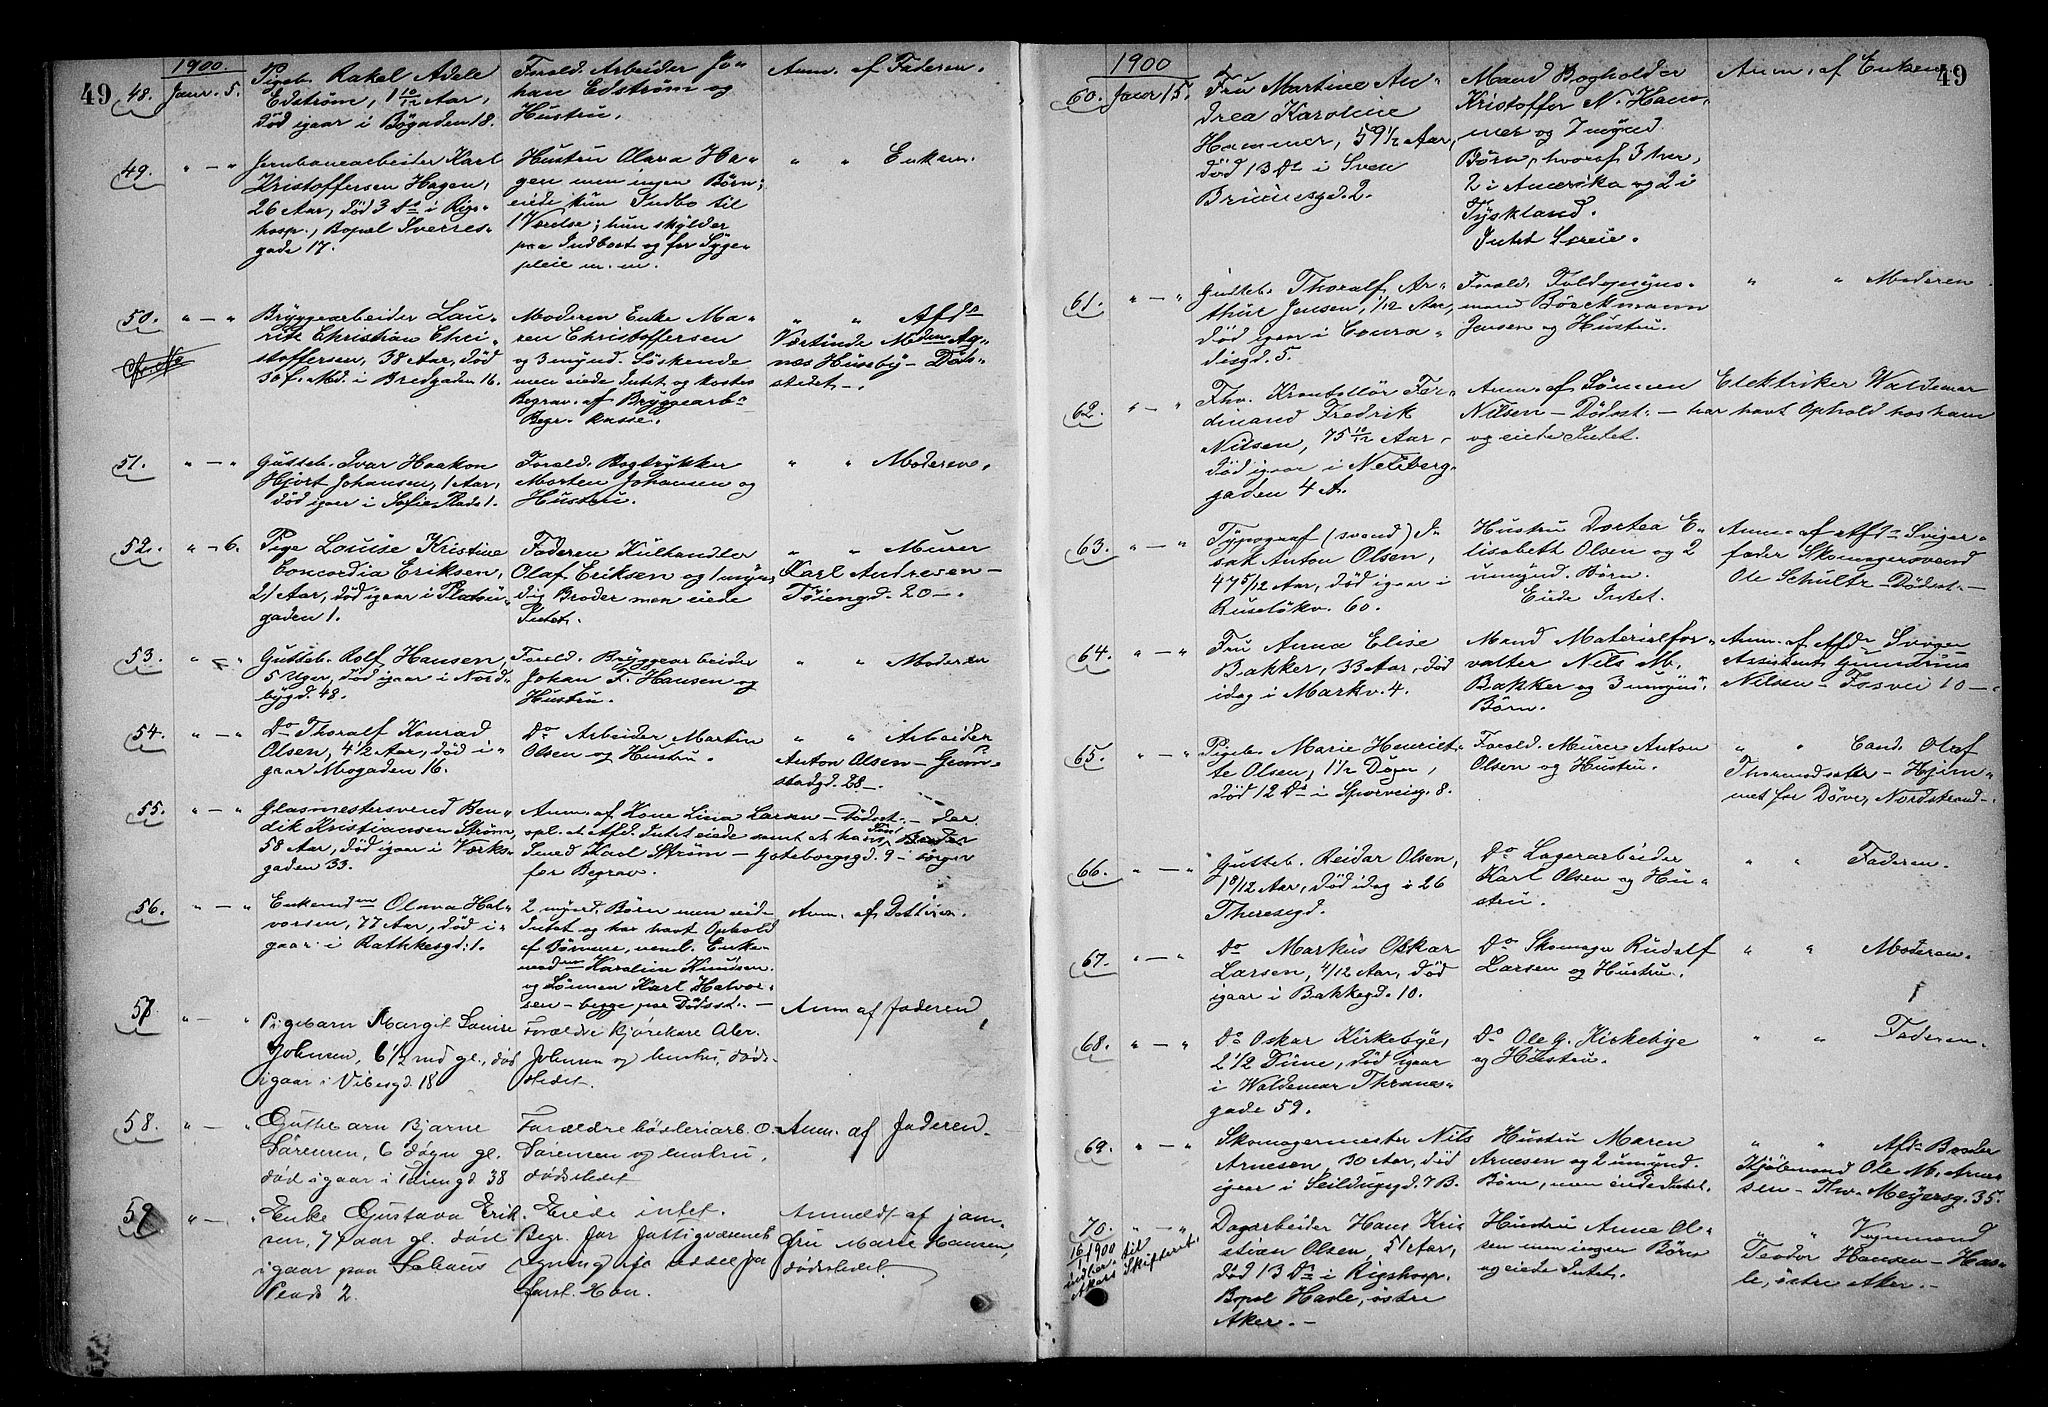 49
1900.
48. Janr. 5.
Pigeb. Rakel Adele
Edstrøm, 1 10/12 Aar,
død igaar i Bøgaden 18.
Foræld. Arbeider Jo-
han Edstrøm og
Hustru.
Anm. af Faderen.
49. " — "
Jernbanearbeider Karl
Kristoffersen Hagen,
26 Aar, død 3 Ds i Rigs-
hosp., Bopæl Sverres-
gade 17.
Hustru Olava Ha-
gen men ingen Børn;
eiede kun Indbo til
1 Værelse; hun skylder
paa Indboet og for Syge-
pleie m. m.
" " Enken.
50. " — "
Bryggearbeider Lau-
ritz Christian Chri-
stoffersen, 38 Aar, død
30 f. Md. i Bredgaden 16.
Moderen Enke Ma-
ren Christoffersen
og 3 mynd. Søskende
men eiede Intet og kostes
Begrav. af Bryggearb.
Begr. kasse.
" " Afds
Værtinde Mden Ag-
nes Husby — Døds-
stedet —.
51. " — "
Gutteb. Ivar Haakon
Hjort Johansen, 1 Aar,
død igaar i Sofies Plads 1.
Foræld. Bogtrykker
Morten Johansen og
Hustru.
" " Moderen.
52. " — 6.
Pige Louise Kristine
Concordia Eriksen,
21 Aar, død igaar i Platou-
gaden 1.
Faderen Kulhandler
Olaf Eriksen og 1 myn-
dig Broder men eiede
Intet.
" " Murer
Karl Andresen —
Tøiengd. 20 —.
53. " — "
Gutteb. Rolf Hansen,
5 Uger, død igaar i Nord-
bygd. 48.
Foræld. Bryggearbeider
Johan F. Hansen og
Hustru.
" " Moderen
54. " — "
Do Thoralf Konrad
Olsen, 4 1/2 Aar, død i-
gaar Mogaden 16.
Do Arbeider Martin
Olsen og Hustru.
" " Arbeider
Anton Olsen — Grøn-
stadgd. 28 —.
55. " — "
Glasmestersvend Ben-
dik Kristiansen Strøm,
58 Aar, død igaar i Værks-
gaden 33.
Anm. af Kone Lina Larsen — Dødsst. — der
opl. at Afd. Intet eiede samt at hans
Smed Karl Strøm — Gøteborgsgd. 9 — sørger
for Begrav.
56. " — "
Enkemdm Olava Hal-
vorsen, 77 Aar, død i-
gaar i Rathkesgd. 1.
2 mynd. Børn men eiede
Intet og har havt Ophold
af Børnene, neml. Enke-
mdm Karoline Knudsen
og Sønnen Karl Halvor-
sen — begge paa Dødsst. —
Anm. af Datteren.
57. " — "
Pigebarn Margit Louise
Johnsen, 6 1/2 md gl., død
igaar i Vibesgd. 18
Forældre kjørekarl Alex.
Johnsen og hustru, døds-
stedet.
Anm af Faderen
58. " — "
Guttebarn Bjarne
Sørensen, 6 døgn gl.
død igaar i Tøiengd 38
Forældre bøsteriarb. O.
Sørensen og hustru,
dødsstedet
Anm. af Faderen.
59 " — "
Enke Gustava Erik-
sen, 77 aar gl. død
igaar paa Schous
Plads 2.
Eiede intet.
Begr. for Fattigvæsenets
regning
Anmeldt af jom-
fru Marie Hansen,
dødsstedet.
49
1900
60. Janr 15.
Fru Martine An-
drea Karoline
Hammer, 59 1/2 Aar,
død 13 Ds i Sven
Bruunsgd. 2.
Mand Bogholder
Kristoffer N. Ham-
mer og 7 mynd.
Børn, hvoraf 3 her,
2 i Amerika og 2 i
Tyskland.
Intet Særeie.
Anm. af Enken
61. " — "
Gutteb. Thoralf Ar-
thur Jensen, 1/12 Aar,
død igaar i Conra-
disgd. 5.
Foræld. Toldopsyns-
mand Böeckmann
Jensen og Hustru.
" " Moderen.
62. " — "
Fhv. Kontrollør Fer-
dinand Fredrik
Nilsen, 75 10/12 Aar,
død igaar i Neuberg-
gaden 4 A.
Anm. af Sønnen Elektriker Waldemar
Nilsen — Dødsst. — har havt Ophold hos ham
og eiede Intet.
63. " — "
Typograf (svend) I-
sak Anton Olsen,
47 5/12 Aar, død igaar i
Ruseløkv. 60.
Hustru Dortea E-
lisabeth Olsen og 2
umynd. Børn.
Eiede Intet.
Anm. af Afds Sviger-
fader Skomagersvend
Ole Schultz — Dødsst. —
64. " — "
Fru Anna Elise
Bakker, 33 Aar, død
idag i Markv. 4.
Mand Materialfor-
valter Nils M.
Bakker og 3 umyn.
Børn.
Anm. af Afds Svoger
Assistent Gunerius
Nilsen — Fossvei 10 —.
65. " — "
Pigeb. Marie Henriet-
te Olsen, 1 1/2 Døgn,
død 12 Ds i Sporveisg. 8.
Foræld. Murer Anton
Olsen og Hustru.
" " Cand. Olaf
Thormodsæter — Hjem-
met for Døve, Nordstrand —.
66. " — "
Gutteb. Reidar Olsen,
1 8/12 Aar, død idag i 26
Theresegd.
Do Lagerarbeider
Karl Olsen og Hu-
stru.
" " Faderen.
67. " — "
Do Markus Oskar
Larsen, 4/12 Aar, død
igaar i Bakkegd. 10.
Do Skomager Rudolf
Larsen og Hustru.
" " Moderen.
68. " — "
Do Oskar Kirkebye,
2 1/2 Time, død igaar
i Waldemar Thranes-
gade 59.
Do Ole G. Kirkebye
og Hustru.
" " Faderen.
69. " — "
Skomagermester Nils
Arnesen, 30 Aar, død
igaar i Seildugsgd. 7 B.
Hustru Maren
Arnesen og 2 umynd.
Børn, men eiede Intet.
" " Afds Broder
Kjøbmand Ole M. Arne-
sen — Thv. Meyersg. 35.
70. " — "
16/1 1900
indber. til
Akers Skifteret.
Dagarbeider Hans Kri-
stian Olsen, 51 Aar,
død 13 Ds i Rigshosp.
Bopæl Hasle, østre
Aker. —
Hustru Anne Ol-
sen men ingen Børn
og eiede Intet.
" " Vognmand
Teodor Hansen — Has-
le, østre Aker. —